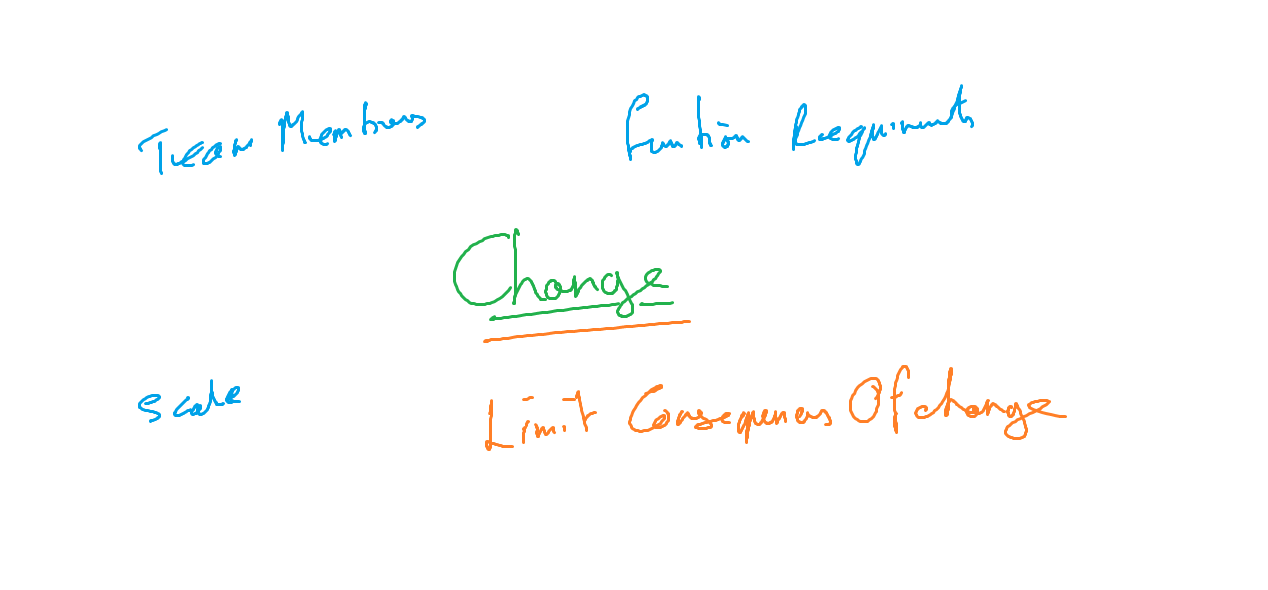 Team Members
Funtion Requirments
Change
Scale
Limit Consequences Of change